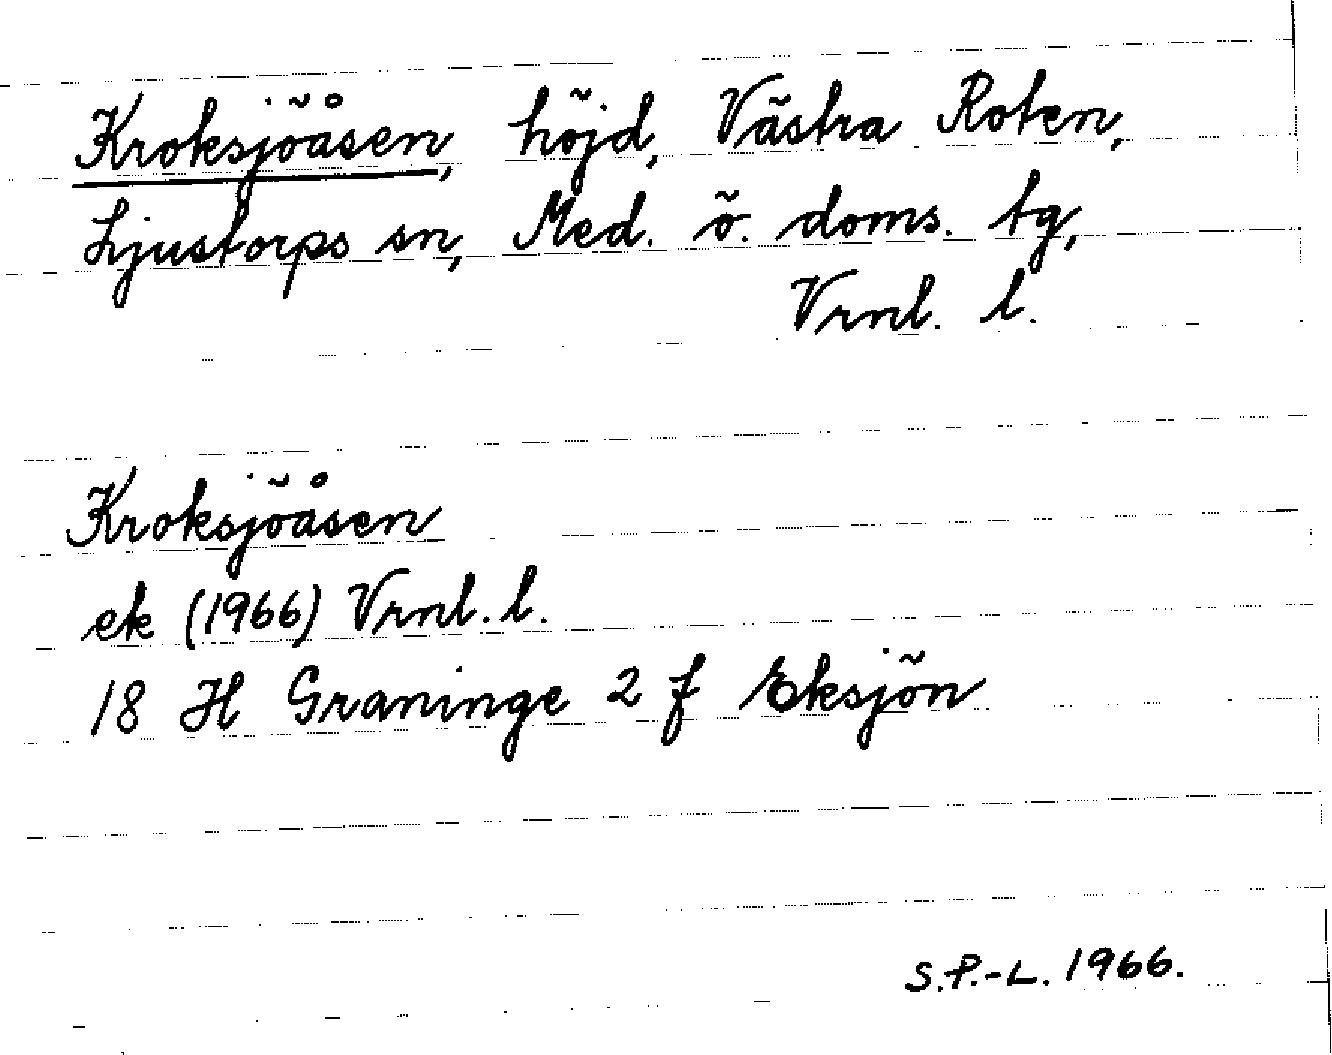 Kroksjöåsen, höjd, Västra Roten,
Ljustorps sn, Med. ö. doms. tg,
Vrnl. l.
Kroksjöåsen
ek (1966) Vrnl. l.
18 H Graninge 2 f Eksjön
S.P.-L. 1966.